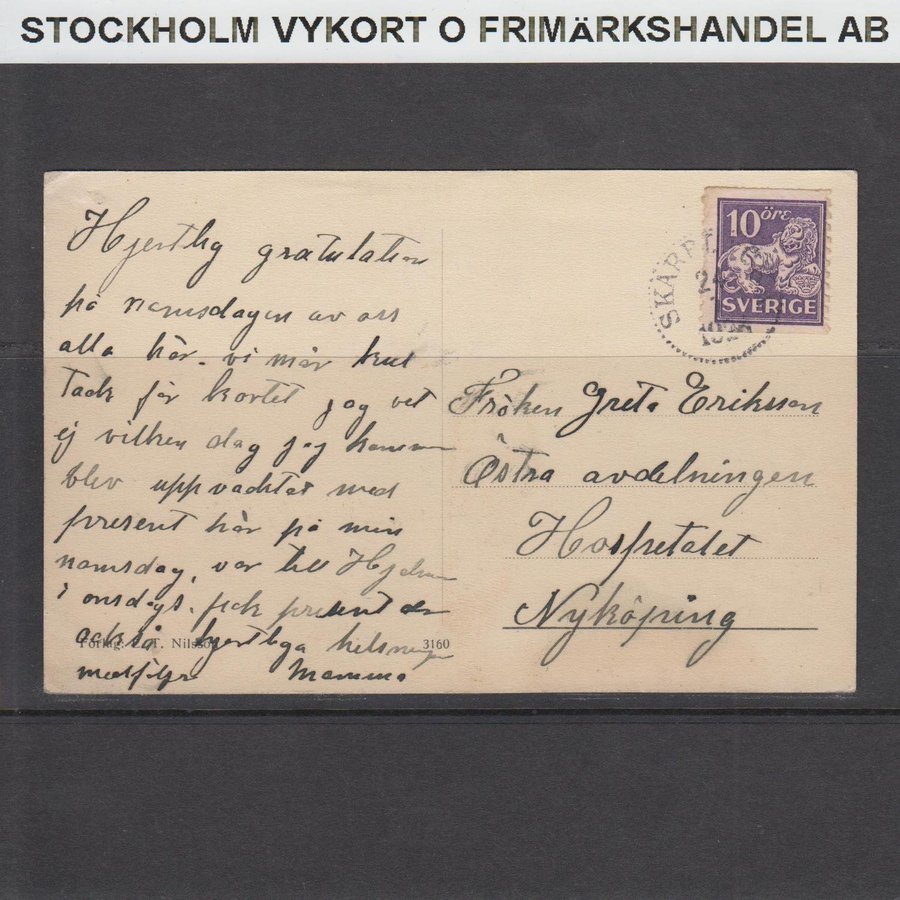 STOCKHOLM VYKORT O FRIMÄRKSHANDEL AB
Hjertlig gratulation
på namsdagen av oss
alla här. vi mår
Tack för kortet jag vet
ej vilken dag jag kommer
blev uppvacktad med
present här på min
namsdag, var till Hjelmm
i onsdags. fick present der
också hjertliga helsningar
medföljer Mamma
Förlag: T. Nilsson
3160
SKÄRP
10 öre
SVERIGE
Fröken Greta Eriksson
Östra avdelningen
Hospetalet
Nyköping